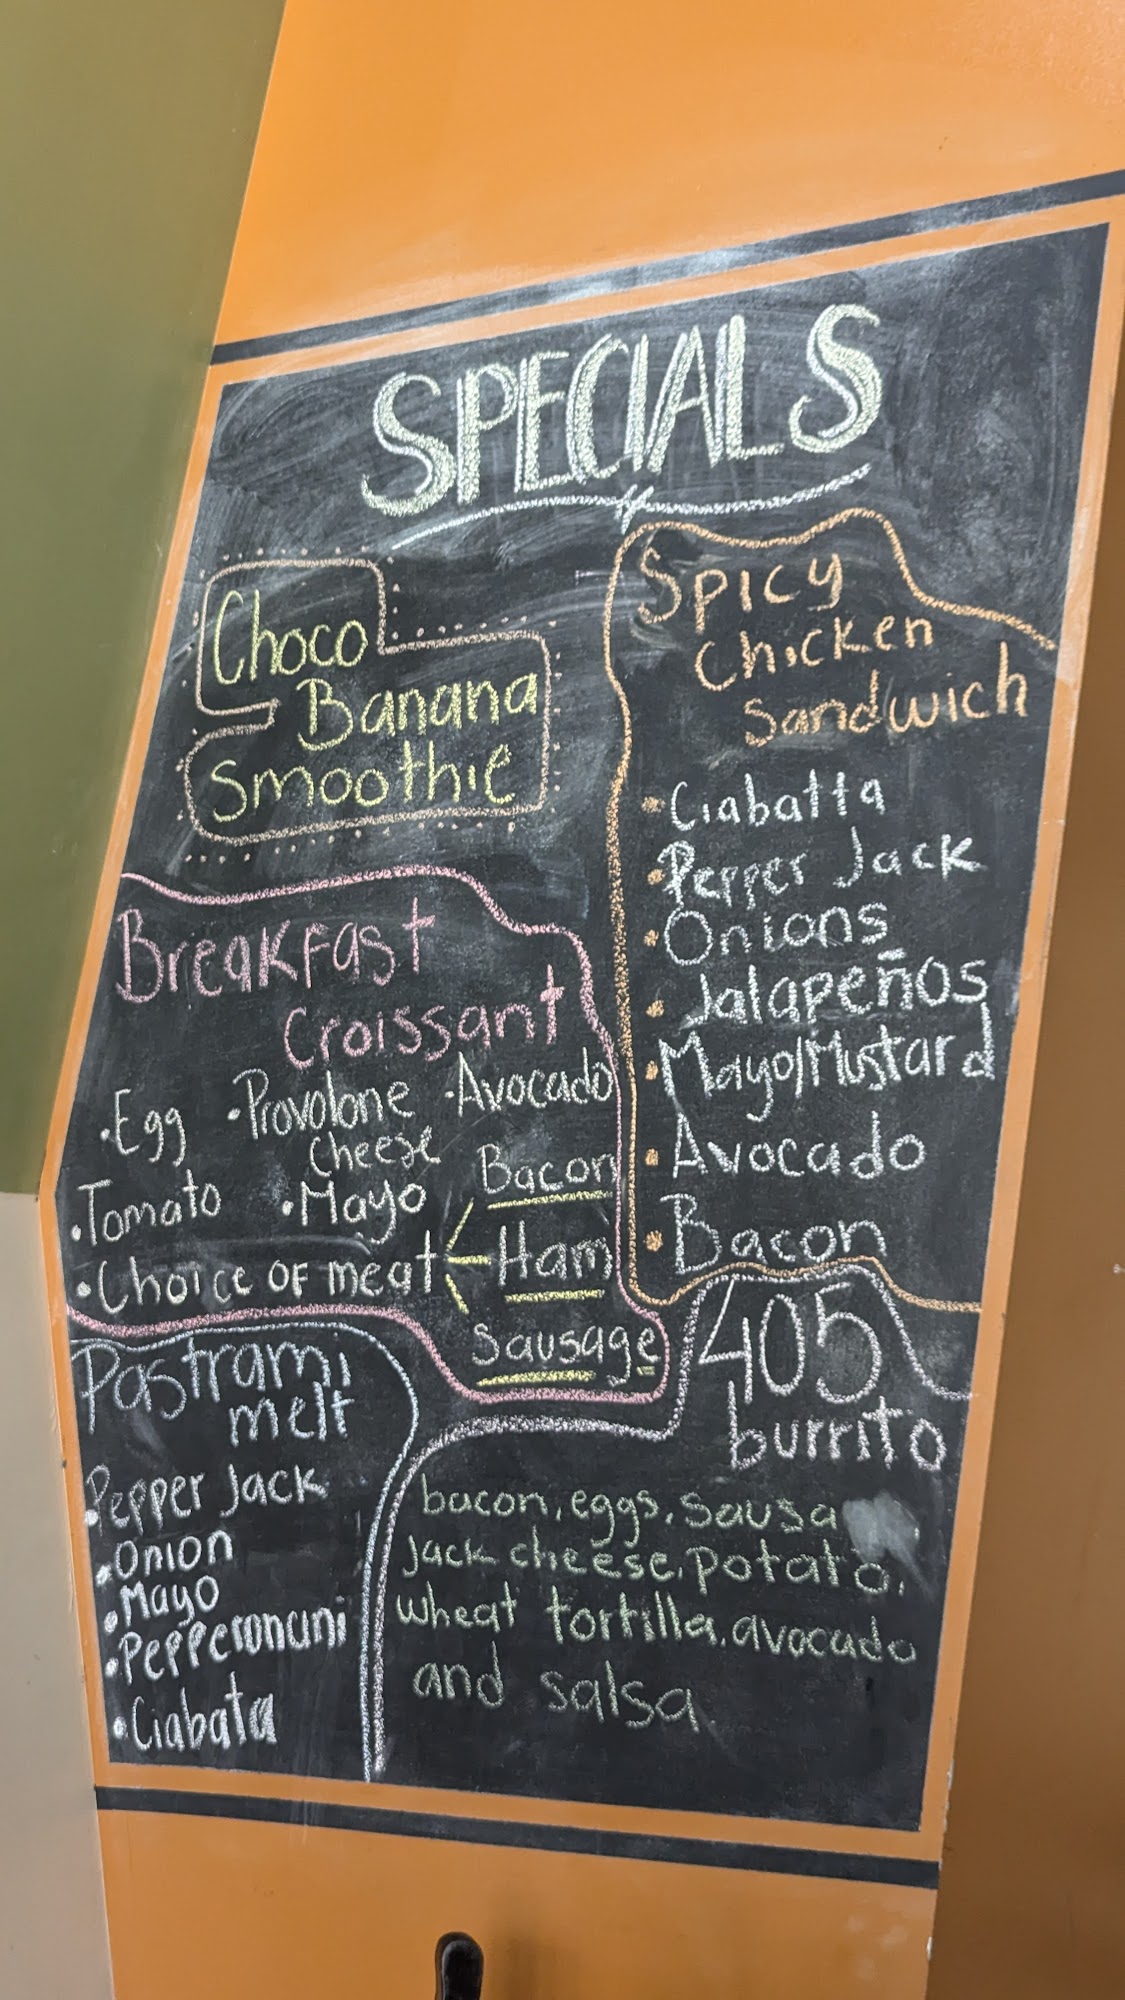 SPECIALS
Choco
Banana
Smoothie
Spicy
Chicken
Sandwich
• Ciabatta
• Pepper Jack
• Onions
• Jalapeños
• Mayo/Mustard
• Avocado
• Bacon
Breakfast
Croissant
• Egg • Provolone Cheese • Avocado
• Tomato • Mayo
• Choice of meat
Bacon
Ham
Sausage
Pastrami
melt
• Pepper Jack
• Onion
• Mayo
• Pepperoncini
• Ciabata
405
burrito
bacon, eggs, sausa
Jack cheese, potato,
wheat tortilla, avocado
and salsa